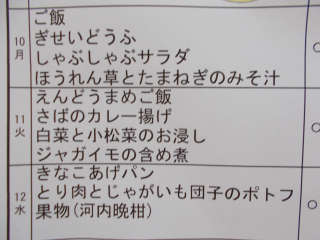 10
月
ご飯
ぎせいどうふ
しゃぶしゃぶサラダ
ほうれん草とたまねぎのみそ汁
11
火
えんどうまめご飯
さばのカレー揚げ
白菜と小松菜のお浸し
ジャガイモの含め煮
12
水
きなこあげパン
とり肉とじゃがいも団子のポトフ
果物(河内晩柑)